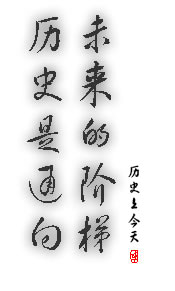 历史是通向
未来的阶梯
历史上今天